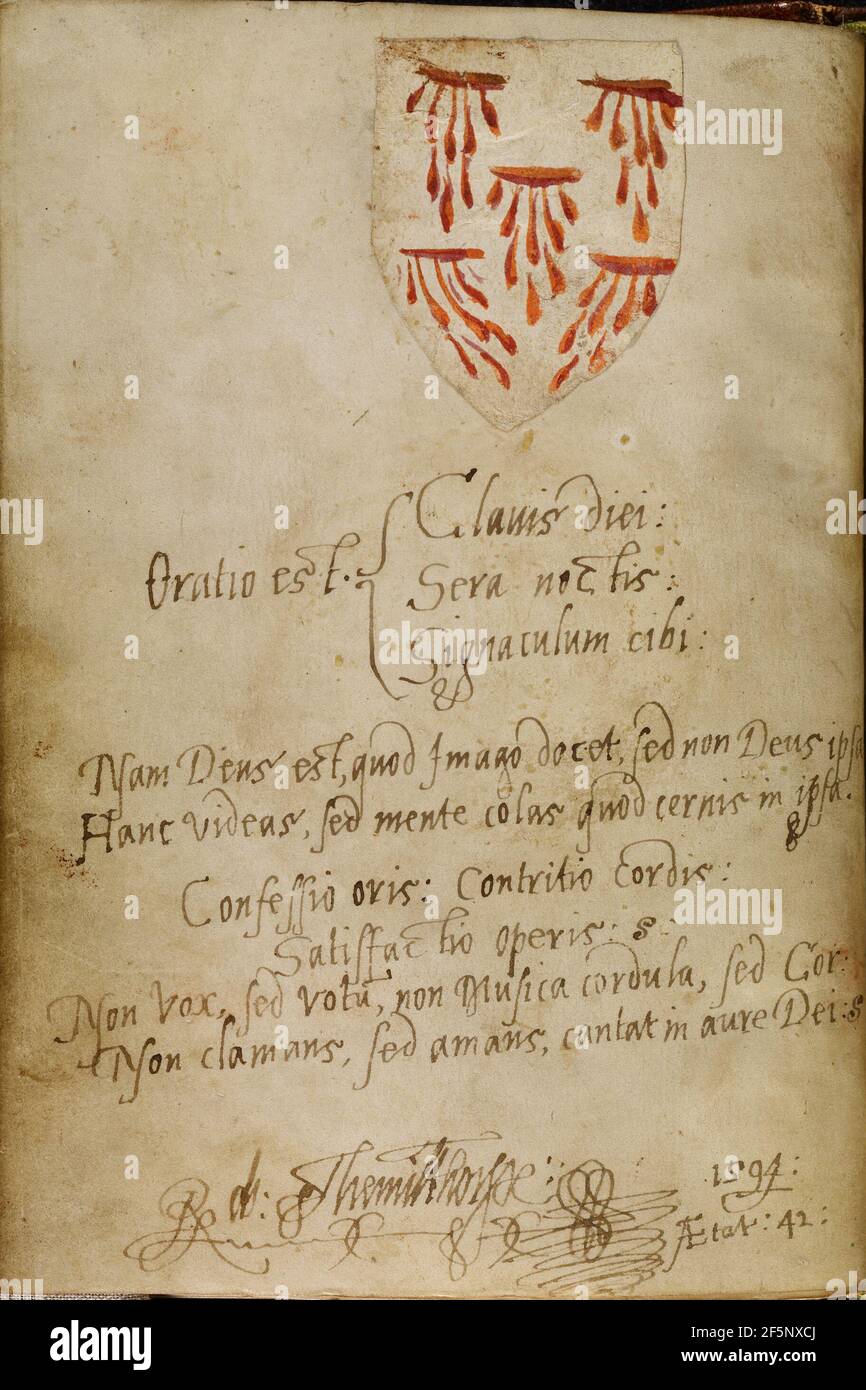 Clauis diei:
Oratio est.
Sera noctis:
Signaculum cibi:
Nam Deus est, quod Imago docet, sed non Deus ipsa
Hanc videas, sed mente colas quod cernis in ipsa.
Confessio oris: Contritio Cordis:
Satisfactio operis:
Non vox, sed votũ, non Musica cordula, sed Cor:
Non clamans, sed amans, cantat in aure Dei:
Rob:
1594:
Ætat: 42:
a alamy
alamy
Image ID: 2F5NXCJ
www.alamy.com